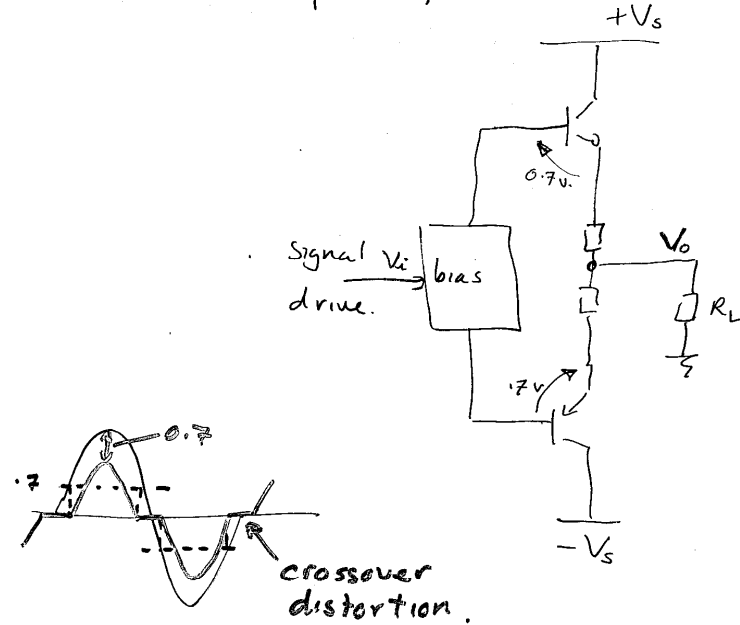 +Vs
0.7v.
Signal Vi
drive.
bias
Vo
RL
.7v
-Vs
0.7
.7
crossover
distortion.